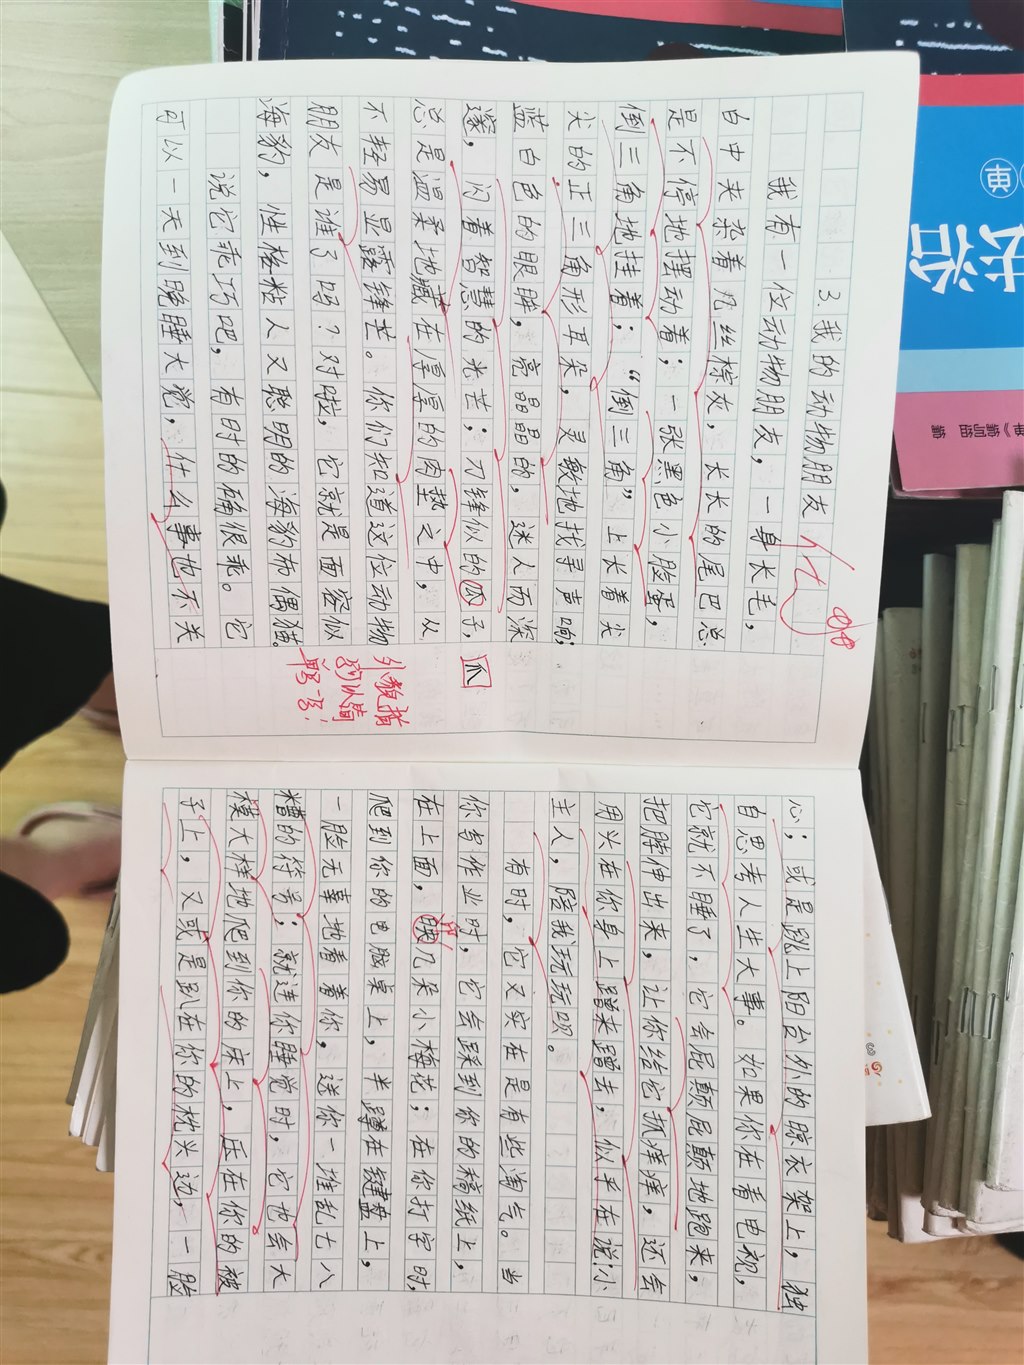 3.我的动物朋友
我有一位动物朋友，一身长毛，
白中夹杂着几丝棕灰，长长的尾巴总
是不停地摆动着；一张黑色小脸蛋，
倒三角地挂着；“倒三角”上长着尖
尖的正三角形耳朵，灵敏地找寻声响；
蓝白色的眼睛，亮晶晶的，迷人而深
邃，闪着智慧的光芒；刀锋似的瓜子，
爪
总是温柔地藏在厚厚的肉垫之中，从
不轻易显露锋芒。你们知道这位动物
外貌描
写可以简
单一些！
朋友是谁了吗？对啦，它就是面容似
海豹，性格粘人又聪明的海豹布偶猫。
说它乖巧吧，有时的确很乖。它
可以一天到晚睡大觉，什么事也不关
心；或是跳上阳台外的晾衣架上，独
自思考人生大事。如果你在看电视，
它就不睡了，它会屁颠屁颠地跑来，
把脖伸出来，让你给它抓痒痒，还会
用头在你身上蹭来蹭去，似乎在说：小
主人，陪我玩玩呗。
有时，它又实在是有些淘气。当
你写作业时，它会踩到你的稿纸上，
在上面，几朵小梅花；在你打字时，
印
爬到你的电脑桌上，半蹲在键盘上，
一脸无事地看着你，送你一堆乱七八
糟的符号；就连你睡觉时，它也会大
模大样地爬到你的床上，压在你的被
子上，又或是趴在你的枕头边，一脸
98